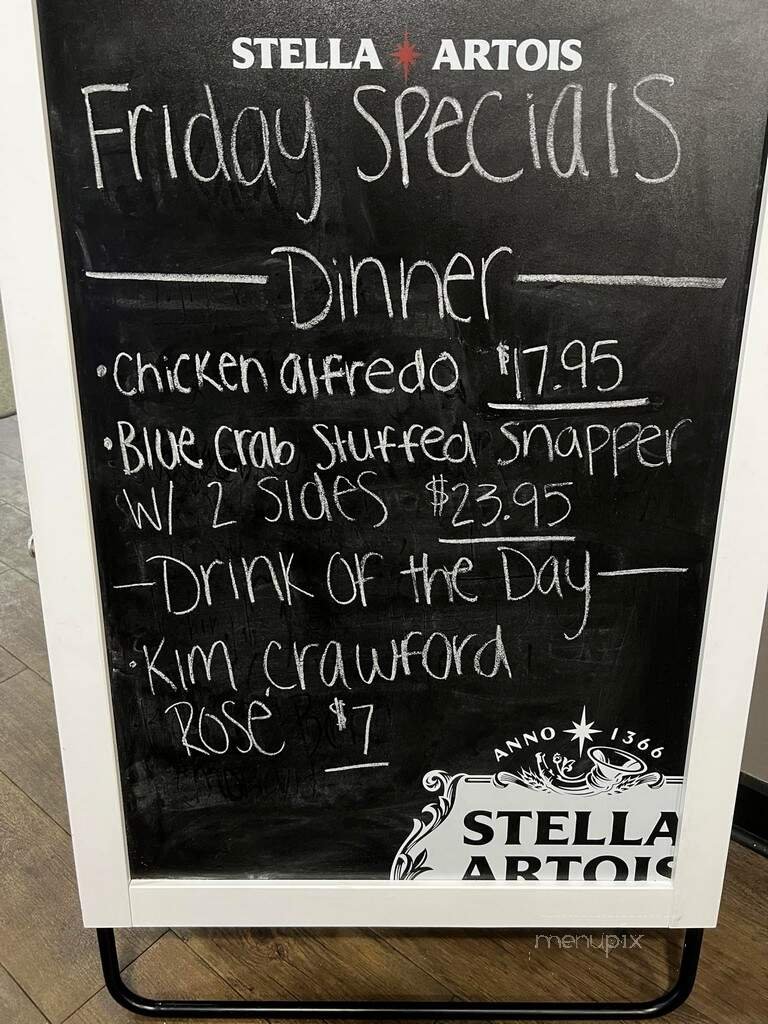 STELLA ARTOIS
Friday Specials
Dinner
• Chicken alfredo $17.95
• Blue Crab Stuffed Snapper
W/ 2 Sides $23.95
- Drink OF the Day -
• Kim Crawford
Rosé $7
ANNO 1366
STELLA
ARTOIS
menupix